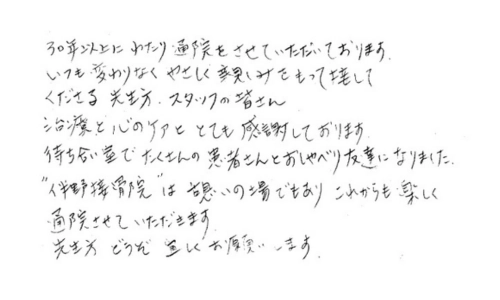 30年以上にわたり通院をさせていただいております。
いつも変わりなくやさしく親しみをもって接して
くださる先生方、スタッフの皆さん
治療と心のケアととても感謝しております。
待ち合い室でたくさんの患者さんとおしゃべり友達になりました。
"伴野接骨院"は憩いの場でもありこれからも楽しく
通院させていただきます。
先生方どうぞ宜しくお願い します。